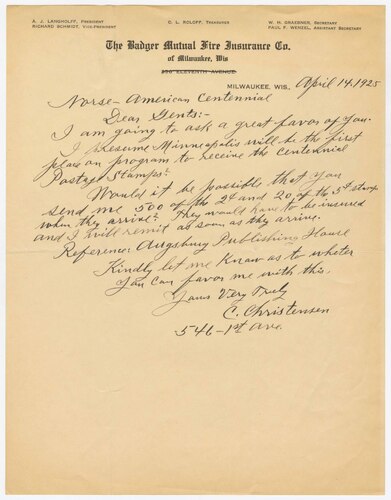 A. J. LANGHOLFF, PRESIDENT
RICHARD SCHMIDT, VICE-PRESIDENT
C. L. ROLOFF, TREASURER
W. H. GRAEBNER, SECRETARY
PAUL F. WENZEL, ASSISTANT SECRETARY
The Badger Mutual Fire Insurance Co.
of Milwaukee, Wis
ELEVENTH AVENUE
MILWAUKEE, WIS., April 14, 1925
Norse-American Centennial
Dear Gents:-
I am going to ask a great favor of you.
I presume Minneapolis will be the first
place on program to receive the centennial
Postage Stamps?
Would it be possible that you
send me 500 of the 2¢ and 20 of the 5¢ stamps
when they arrive? They would have to be insured
and I will remit as soon as they arrive.
Reference: Augsburg Publishing House
Kindly let me know as to wheter
you can favor me with this.
Yours Very Truly
C. Christensen
546-1st Ave.